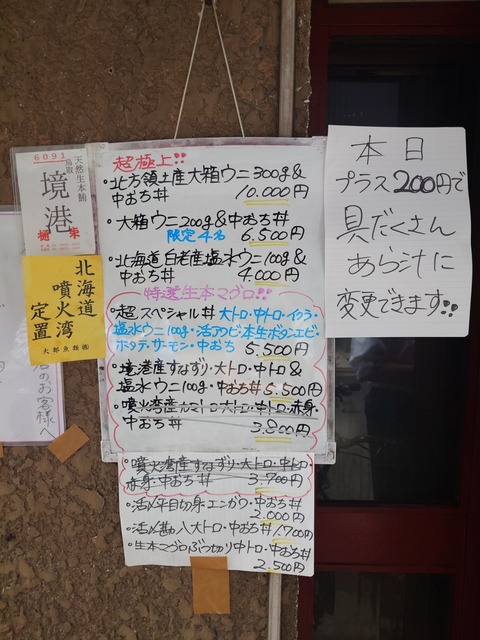 超極上!!
・北方領土産大箱ウニ300g&
中おち丼 10.000円
・大箱ウニ200g&中おち丼
限定4名 6.500円
・北海道白老産塩水ウニ100g&
中おち丼 4.000円
特選生本マグロ!!
・超スペシャル丼 大トロ・中トロ・イクラ・
塩水ウニ100g・活アワビ・本生ボタンエビ・
ホタテ・サーモン・中おち 5.500円
・境港産すなずり・大トロ・中トロ&
塩水ウニ100g・中おち丼 5.500円
・噴火湾産カマトロ・大トロ・中トロ・赤身・
中おち丼 3.800円
・噴火湾産すなずり・大トロ・中トロ・
赤身・中おち丼 3.700円
・活〆平目切身・エンガワ・中おち丼
2.000円
・活〆勘八大トロ・中おち丼 1700円
・生本マグロぶつ切り中トロ・中おち丼
2.500円
本日
プラス200円で
具だくさん
あら汁に
変更できます!!
6091
天然生本鮪
鳥取
境港
北海道
噴火湾
定置
大都魚類㈱
のお客様へ